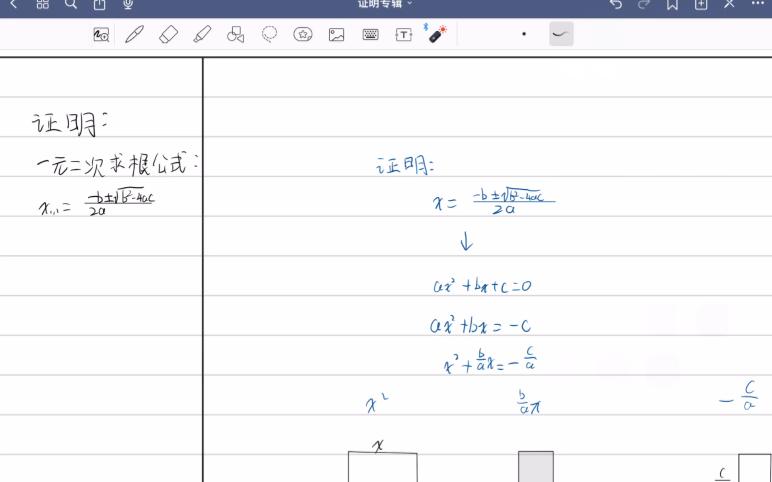 证明专辑
证明:
一元二次求根公式:
x₁,₁ = (-b±√(b²-4ac))/(2a)
证明:
x = (-b±√(b²-4ac))/(2a)
↓
ax²+bx+c=0
ax²+bx=-c
x²+b/a x=-c/a
x² b/a x -c/a
x
c